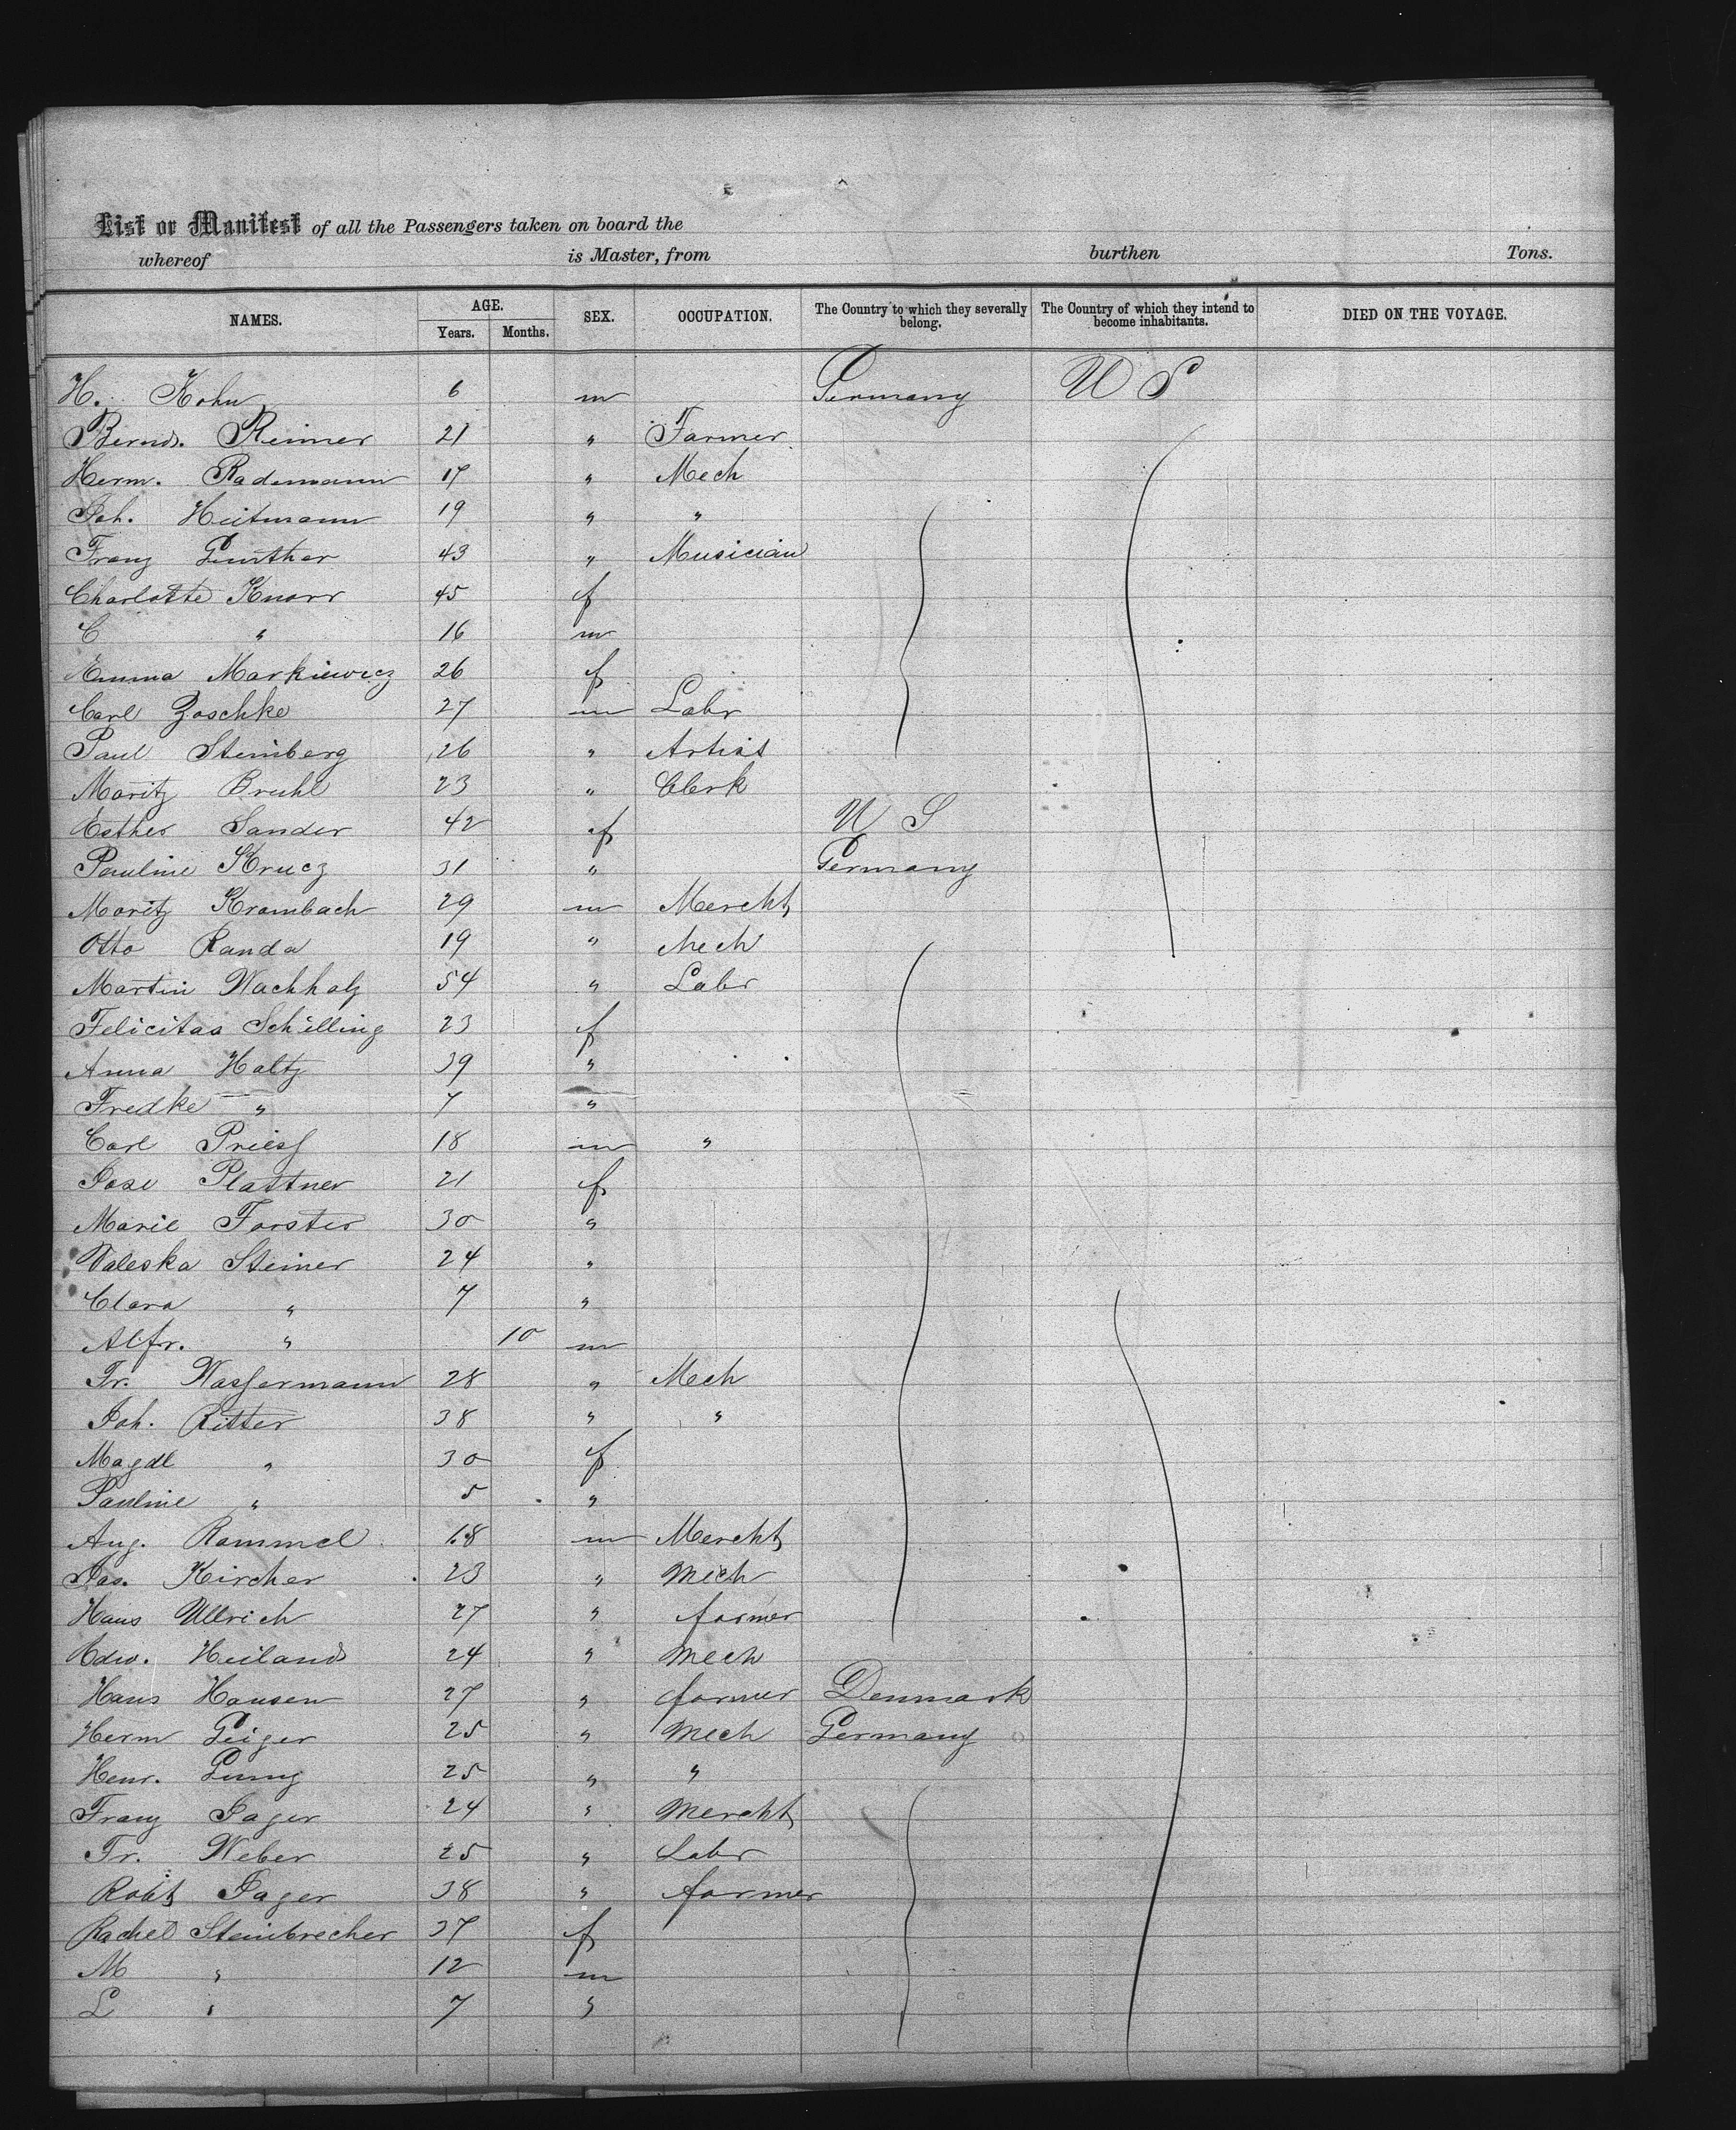 List or Manifest of all the Passengers taken on board the
whereof is Master, from burthen Tons.
NAMES. AGE. SEX. OCCUPATION. The Country to which they severally belong. The Country of which they intend to become inhabitants. DIED ON THE VOYAGE.
Years. Months.
H. Kohn 6 m Germany U S
Bernd. Reimer 21 " Farmer
Herm. Rademann 17 " Mech
Joh. Heitmann 19 " "
Franz Gunther 43 " Musician
Charlotte Knorr 45 f
C " 16 m
Emma Markiewicz 26 f
Carl Zoschke 27 m Labr
Paul Steinberg 26 " Artist
Moritz Bruhl 23 " Clerk
Esther Sander 42 f U S
Pauline Krucz 31 " Germany
Moritz Krombach 29 m Mercht
Otto Randa 19 " Mech
Martin Wachholz 54 " Labr
Felicitas Schilling 23 f
Anna Holtz 39 "
Fredke " 7 "
Carl Priess 18 m "
Jose Plattner 21 f
Marie Forster 30 "
Valeska Steiner 24 "
Clara " 7 "
Alfr. " 10 m
Fr. Wassermann 28 " Mech
Joh. Ritter 38 " "
Magdl " 30 f
Pauline " 5 "
Aug. Rommel 18 m Mercht
Jos. Kircher 23 " Mech
Hans Ullrich 27 " farmer
Edw. Heiland 24 " Mech
Hans Hansen 27 " farmer Denmark
Herm Geiger 25 " Mech Germany
Henr. 25 " "
Franz Jager 24 " Mercht
Fr. Weber 25 " Labr
Robt Jager 38 " farmer
Rachel Steinbrecher 37 f
M " 12 m
L " 7 "